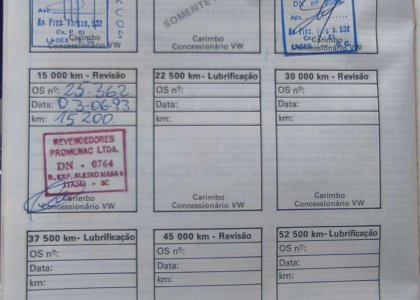 COS
SOMENTE
DN nº
Av. Pres. Vargas, 532
Av. Pres. 532
Cx. P.
LAGES
Carimbo
Concessionário VW
Carimbo
Concessionário VW
Carimbo
Concessionário VW
15 000 km - Revisão
OS nº: 25.362
Data: 03-06-93
km: 15 200.
REVENDEDORES
PROMENAC LTDA.
DN - 0764
R. EXP. ALEIXO MABA
ITAJAÍ - SC
Carimbo
Concessionário VW
22 500 km - Lubrificação
OS nº:
Data:
km:
Carimbo
Concessionário VW
30 000 km - Revisão
OS nº:
Data:
km:
Carimbo
Concessionário VW
37 500 km - Lubrificação
OS nº:
Data:
km:
45 000 km - Revisão
OS nº:
Data:
km:
52 500 km - Lubrificação
OS nº:
Data:
km: